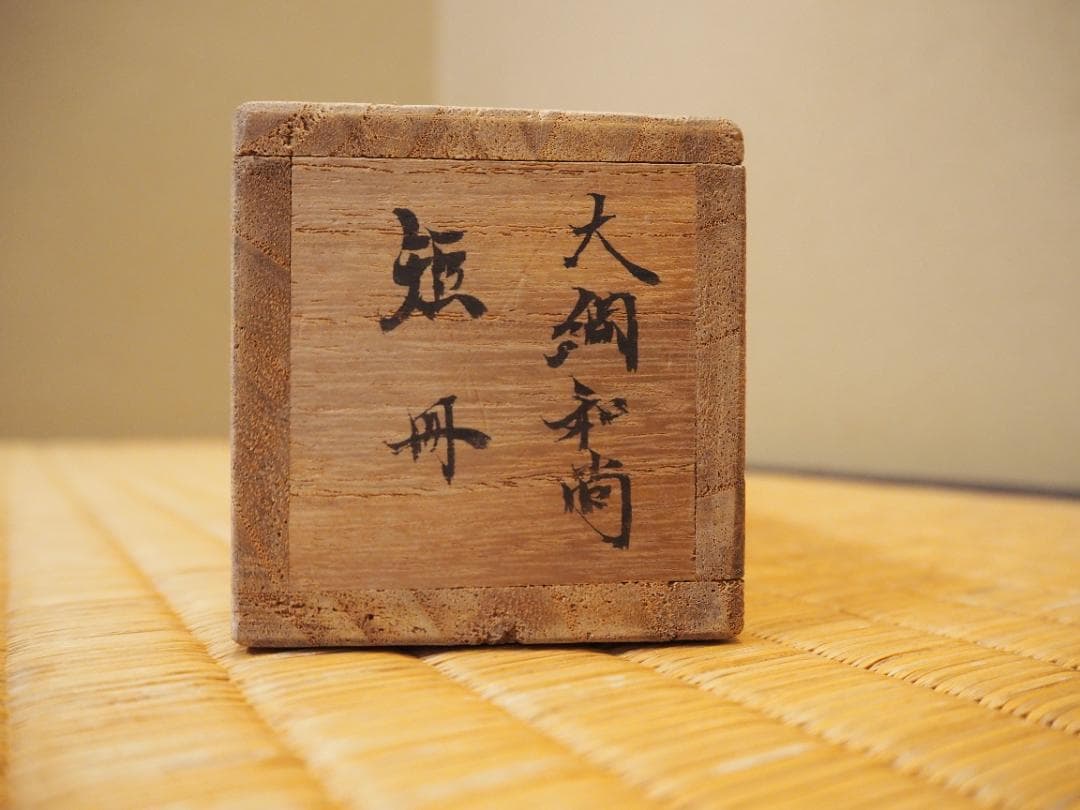 大綱和尚
短冊